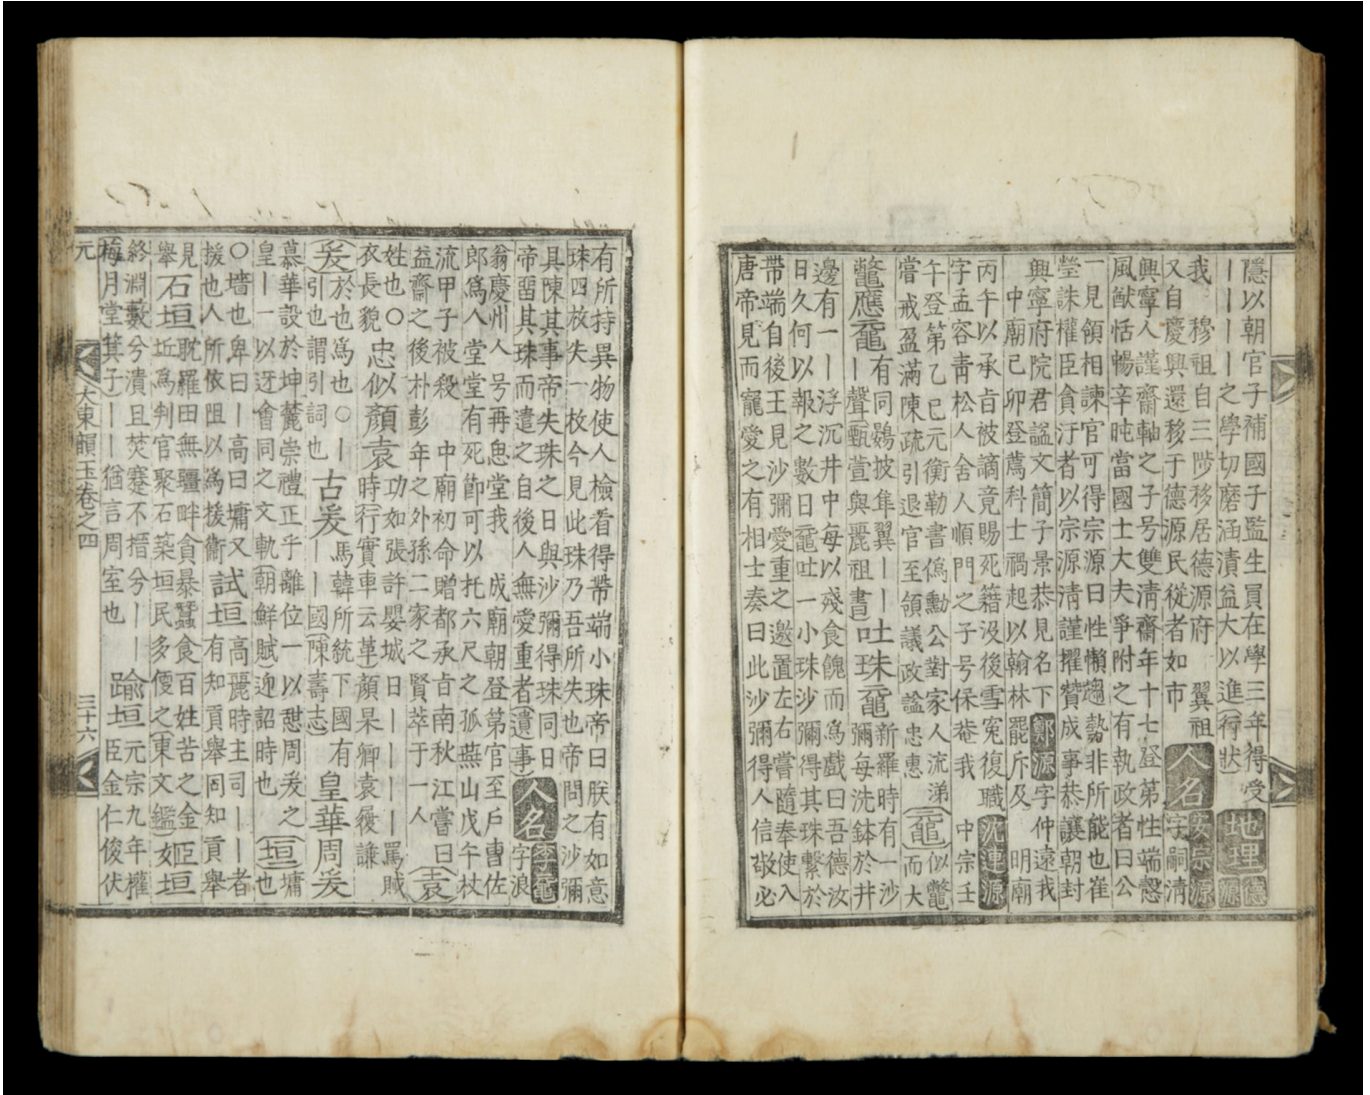 隱以朝官子補國子監生員在學三年得受
丨丨丨丨之學切磨涵漬益大以進(行狀)
地理
德源
我 穆祖自三陟移居德源府 翼祖
又自慶興還移于德源民從者如市
人名
安宗源
字嗣清
興寧人謹齋軸之子号雙清齋年十七登第性端慤
風猷恬暢辛旽當國士大夫爭附之有執政者曰公
一見領相諫官可得宗源曰性懶趨勢非所能也崔
瑩誅權臣貪汙者以宗源清謹擢贊成事恭讓朝封
興寧府院君謚文簡子景恭見名下
鄭源
字仲遠我
中廟己卯登薦科士禍起以翰林罷斥及 明廟
丙午以承旨被謫竟賜死籍沒後雪冤復職
沈連源
字孟容青松人舍人順門之子号保菴我 中宗壬
午登第乙巳元衡勒書僞勳公對家人流涕
嘗戒盈滿陳疏引退官至領議政謚忠惠
黿
似鼈而大
鼈應黿
有同鷃披隼翼丨丨
丨聲(甄萱與麗祖書)
吐珠黿
新羅時有一沙
彌每洗鉢於井
邊有一丨浮沉井中每以殘食餽而爲戲曰吾德汝
日久何以報之數日黿吐一小珠沙彌得其珠繫於
帶端自後王見沙彌愛重之邀置左右嘗隨奉使入
唐帝見而寵愛之有相士奏曰此沙彌得人信敬必
有所持異物使人檢看得帶端小珠帝曰朕有如意
珠四枚失一枚今見此珠乃吾所失也帝問之沙彌
具陳其事帝失珠之日與沙彌得珠同日
帝留其珠而遣之自後人無愛重者(遺事)
人名
李黿
字浪
翁慶州人号再思堂我 成廟朝登第官至戶曹佐
郎爲人堂堂有死節可以托六尺之孤燕山戊午杖
流甲子被殺 中廟初命贈都承旨南秋江嘗曰
益齋之後朴彭年之外孫二家之賢萃于一人
袁
姓也○
衣長貌
忠似顏袁
功如張許嬰城日丨丨丨丨罵賊
時(行實車云革)顏杲卿袁履謙
爰
於也爲也○丨
引也謂引詞也
古爰
馬韓所統下國有
丨丨國(陳壽志)
皇華周爰
慕華設於坤麓崇禮正乎離位一以憇周爰之
皇丨一以迓會同之文軌(朝鮮賦)迎詔時也
垣
墉也
○墻也卑曰丨高曰墉又
援也人所依阻以爲援衞
試垣
高麗時主司丨丨者
有知貢舉同知貢舉
見
舉
石垣
耽羅田無疆畔貪暴蠶食百姓苦之金
坵爲判官聚石築垣民多便之(東文鑑)
如垣
臣
終淵藪兮潰且焚蹇不搢兮丨丨
(梅月堂箕子)丨丨猶言周室也
踰垣
元宗九年權
臣金仁俊伏
元
大東韻玉卷之四
三十六